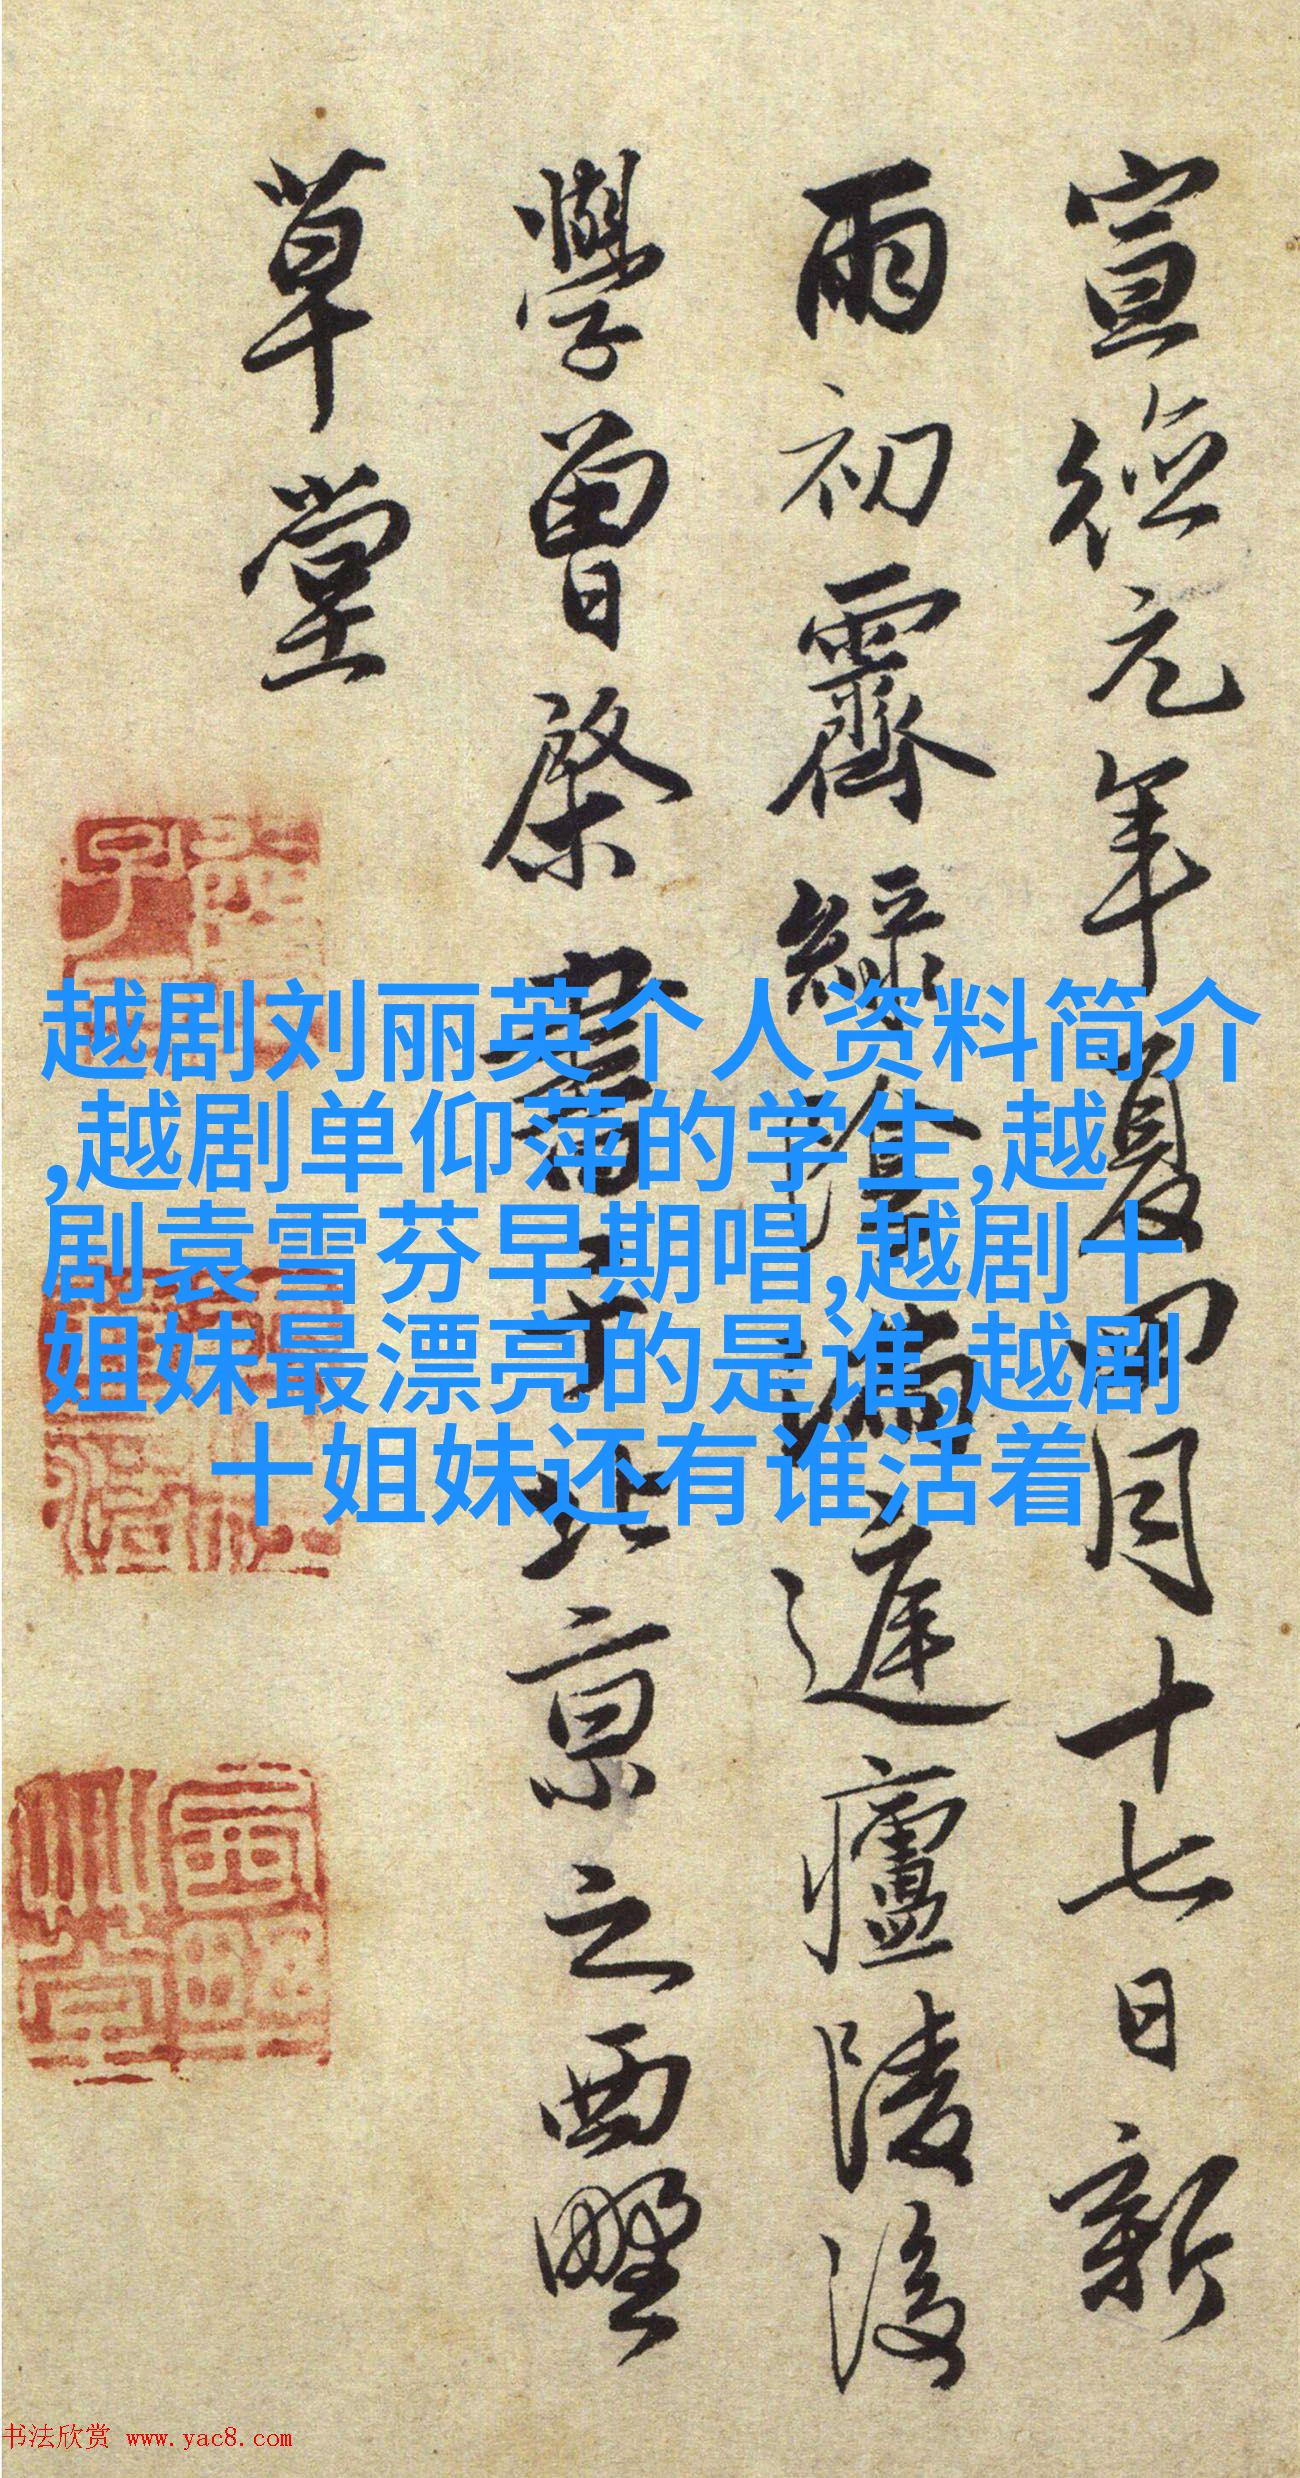 宣德元年夏四月十七日新
雨初霽綠陰滿庭廬陵後
學曾棨書于北京之西墅
草堂
越剧刘丽英个人资料简介
,越剧单仰萍的学生,越
剧袁雪芬早期唱,越剧十
姐妹最漂亮的是谁,越剧
十姐妹还有谁活着
书法欣赏 www.yac8.com